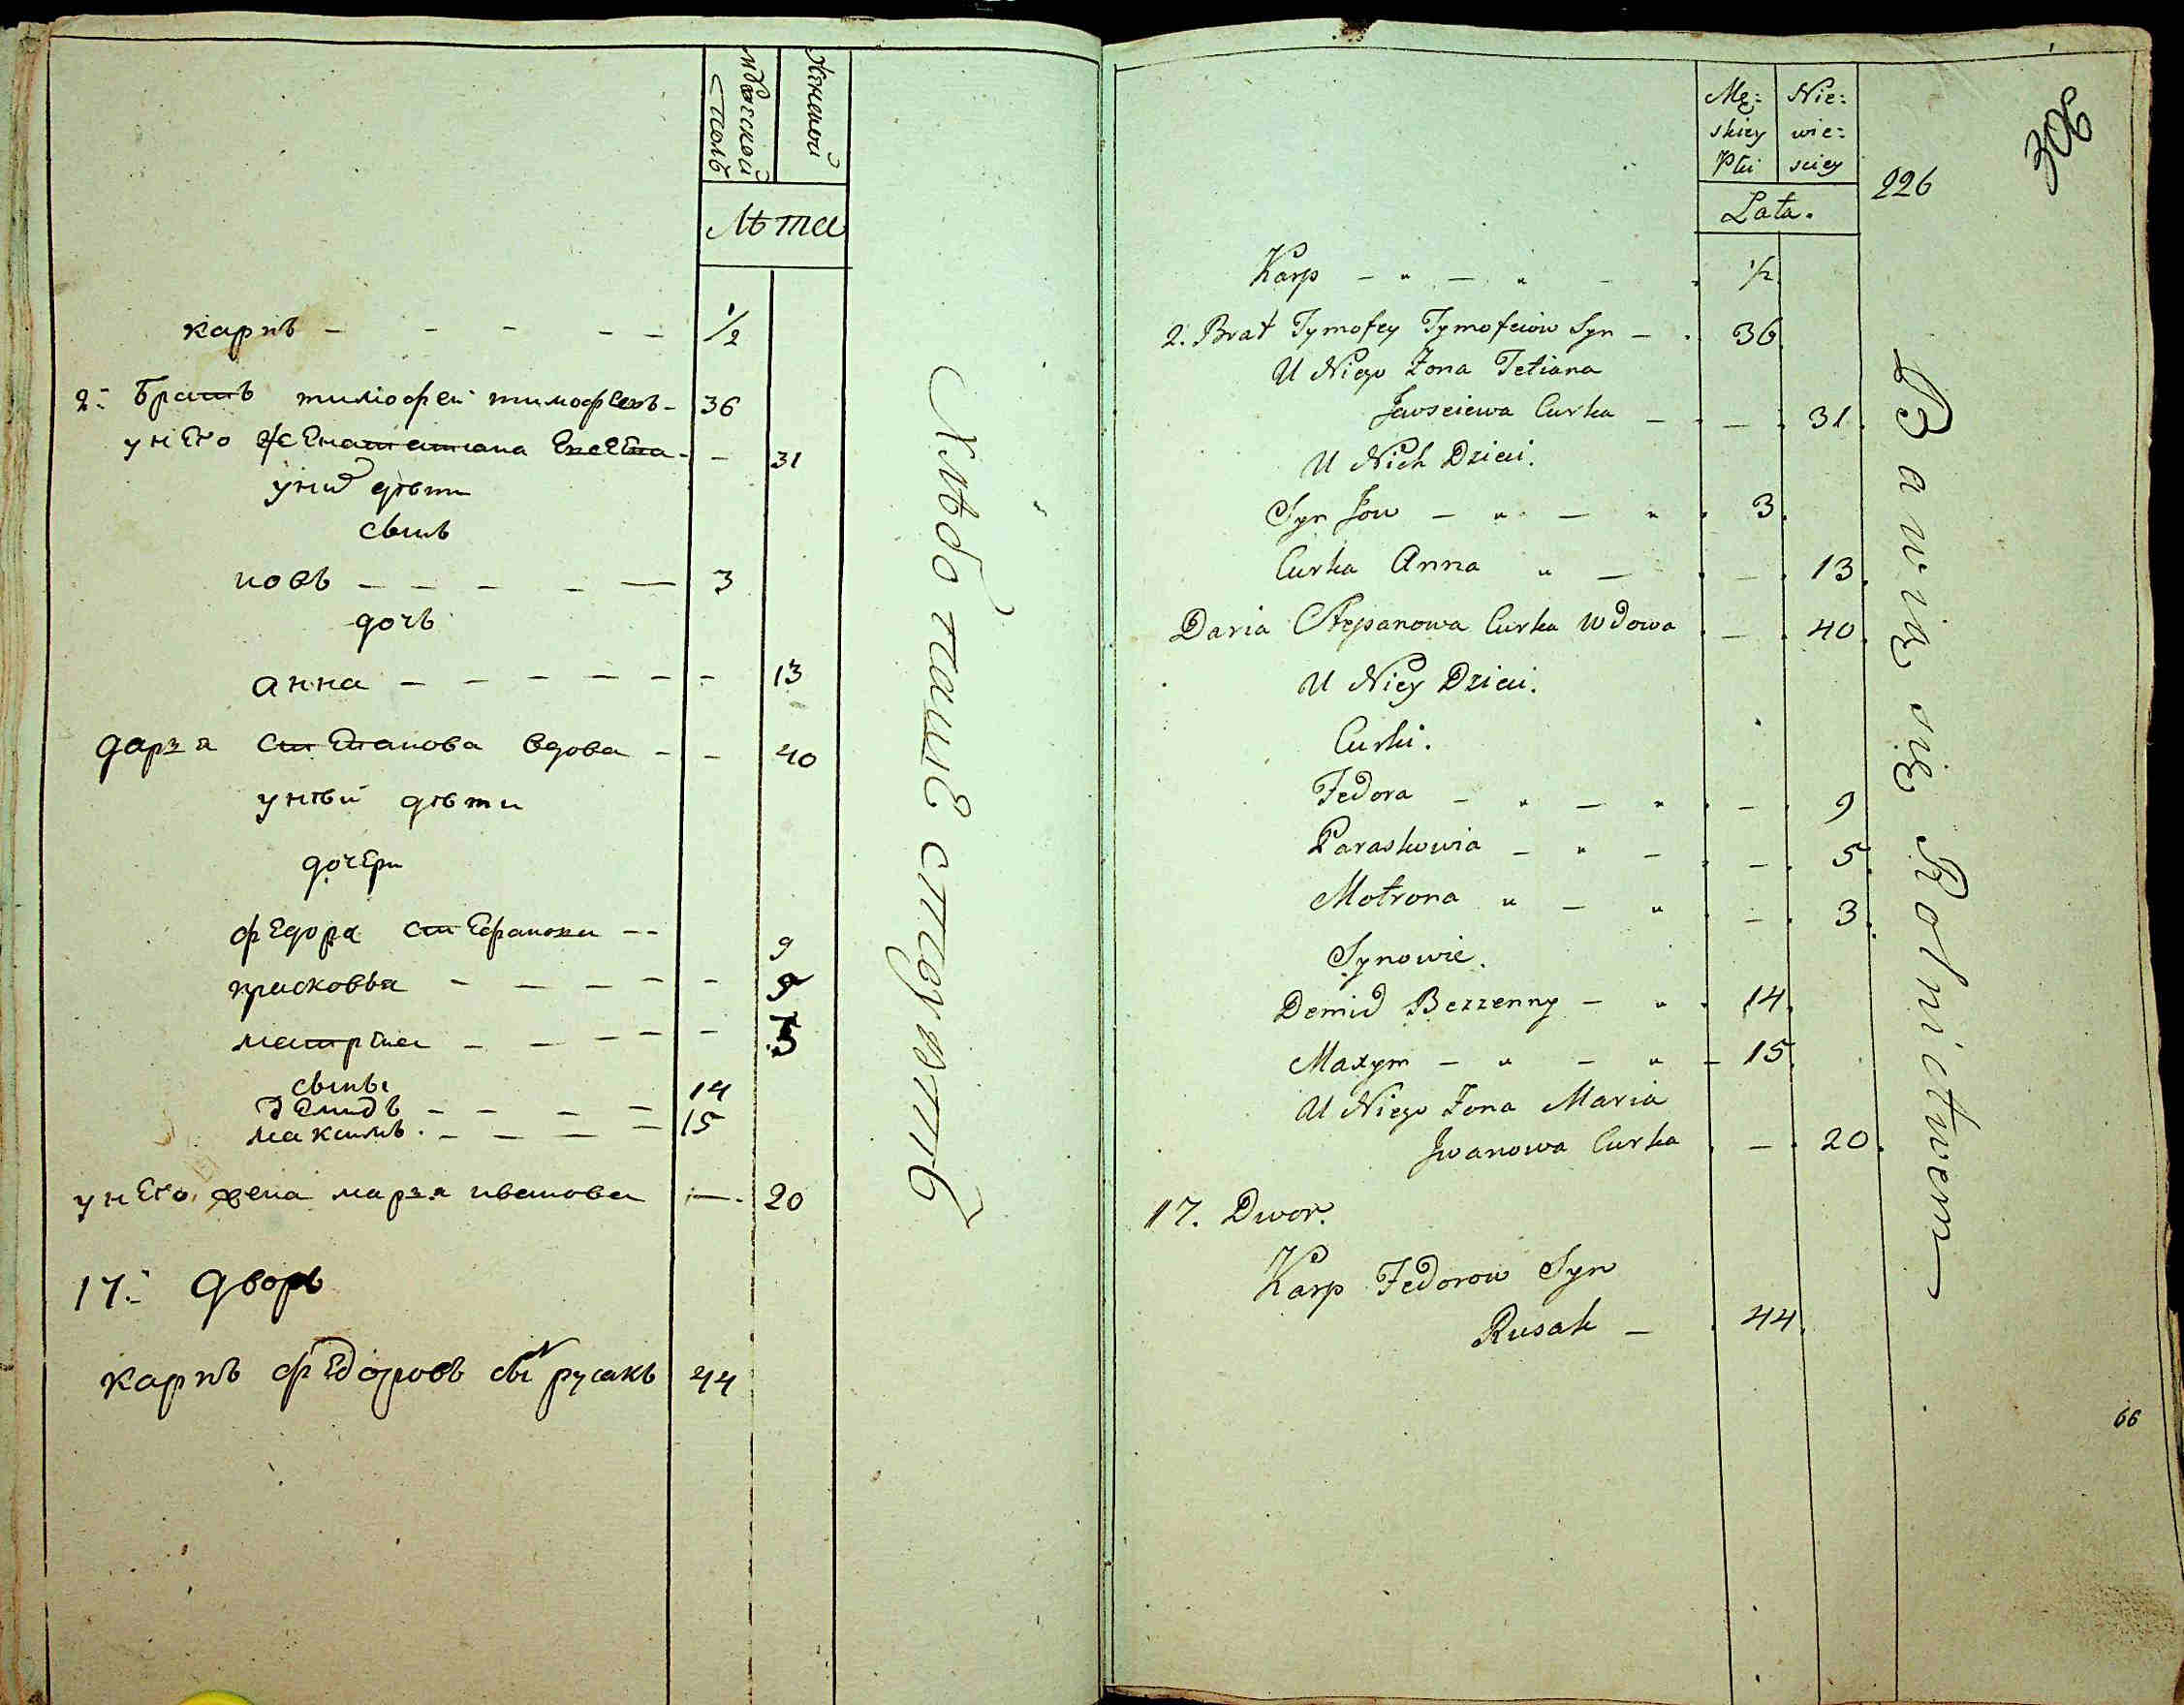 Мужеской
Полъ
Женской
Лѣта
карпъ - - - - - 1/2
2: братъ тимофей тимофеевъ - 36
у него жена татиана - - 31
у них дѣти
сынъ
иовъ - - - - - 3
дочь
анна - - - - - - - 13
даръя степанова вдова - - 40
у нѣй дѣти
дочери
федора стефанова -- 9
прасковья - - - - - 9
матрена - - - - - 3
сыны
демидъ - - - - 14
максимъ. - - - - 15
у него жена маръя иванова - 20
17: дворъ
карпъ федоровъ сын русакъ 44
Хлѣбопашествуютъ
Mę:
skiey
Płci
Nie:
wie:
sciey
Lata.
226
306
Karp - „ - „ - 1/2
2. Brat Tymofey Tymofeiow Syn - 36
U Niego Zona Tetiana
Jewseiewa Curka - - 31
U Nich Dzieci.
Syn Jow - „ - „ 3
Curka Anna „ - - 13
Daria Stepanowa Curka Wdowa - 40
U Niey Dzieci.
Curki.
Fedora - „ - „ - 9
Paraskowia - „ - - 5
Motrona „ - „ - 3
Synowie.
Demid Bezzenny - „ 14
Maxym - „ - „ - 15
U Niego Zona Maria
Jwanowa Curka - 20
17. Dwor.
Karp Fedorow Syn
Rusak - 44
Bawią się Rolnictwem
66